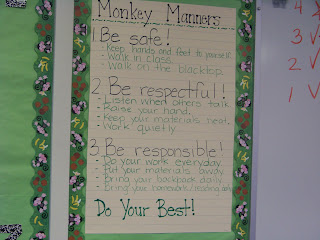 Monkey Manners
1 Be safe!
- Keep hands and feet to yourself.
- Walk in class.
- Walk on the blacktop.
2 Be respectful!
- Listen when others talk.
- Raise your hand.
- Keep your materials neat.
- Work quietly.
3 Be responsible!
- Do your work everyday.
- Put your materials away.
- Bring your backpack daily.
- Bring your homework/reading daily.
Do Your Best!
4
3
2
1